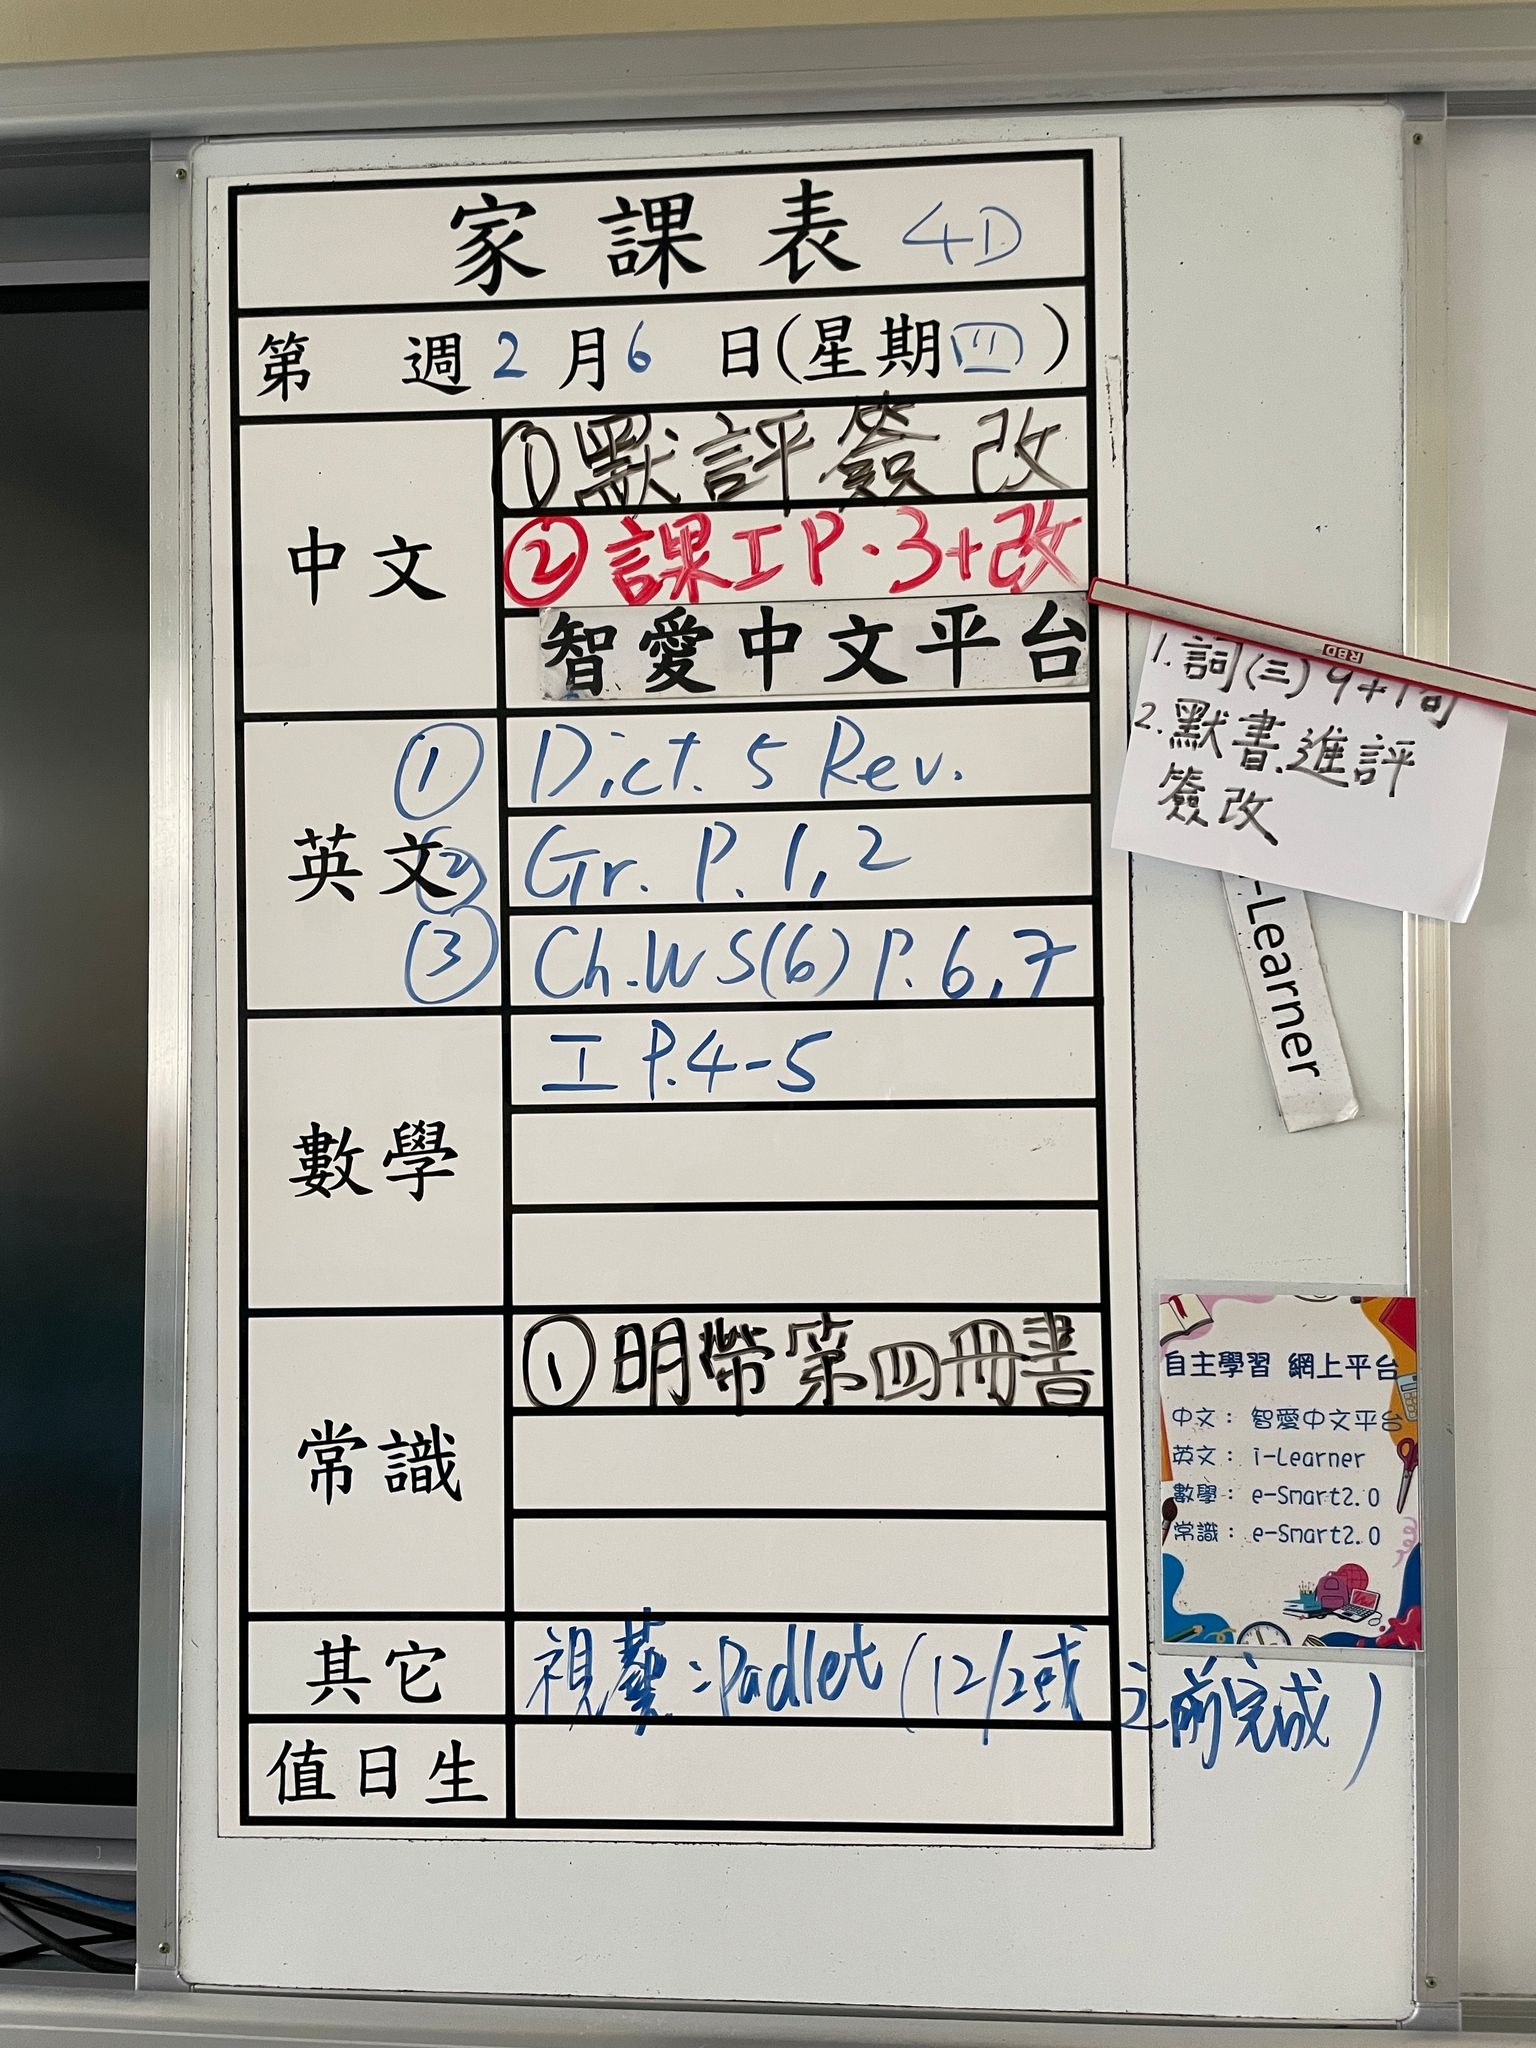 家課表 4D
第 週 2月6日(星期四)
中文
①默評簽改
②課工P.3+改
智愛中文平台
英文
① Dict. 5 Rev.
② Gr. P. 1, 2
③ Ch.WS(6) P. 6, 7
數學
工 P.4-5
常識
①明帶第四冊書
其它
視藝：Padlet (12/2或之前完成)
值日生
RBD
1. 詞(三) 9+1句
2. 默書進評
簽改
-Learner
自主學習 網上平台
中文： 智愛中文平台
英文： i-Learner
數學： e-Smart2.0
常識： e-Smart2.0